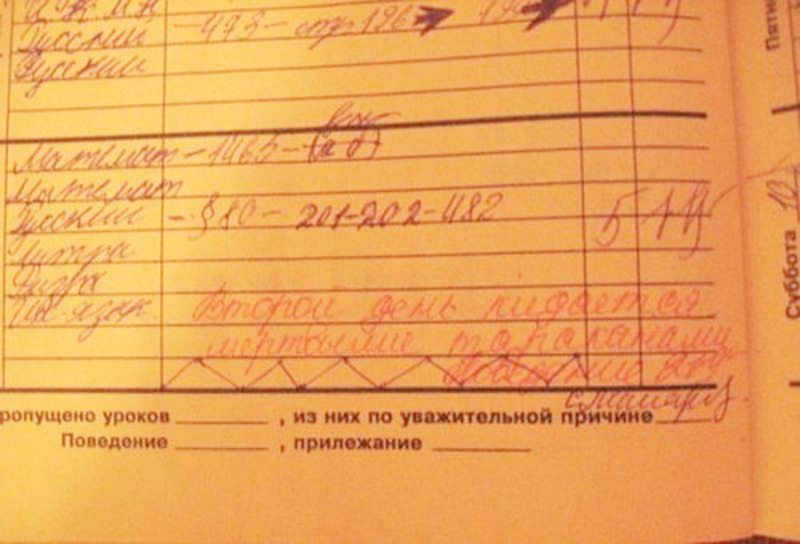 Русский - 493 - стр 196
Русский
Математ - 1465 - (а б)
Математ
Русский - § 80 - 201-202-482 5
Литра
Физра
Тат-язык Второй день кидается
мертвыми тараканами
Поведение
пропущено уроков , из них по уважительной причине
Поведение , прилежание
Пятни
Суббота